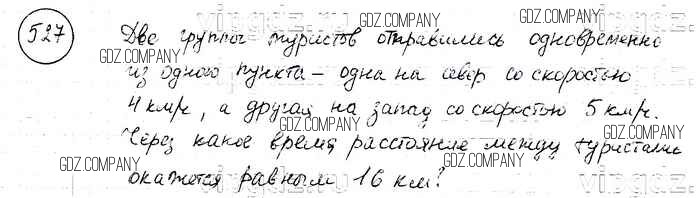 527
GDZ.COMPANY
Две группы туристов отправились одновременно
GDZ.COMPANY
из одного пункта - одна на север со скоростью
4 км/ч, а другая на запад со скоростью 5 км/ч.
GDZ.COMPANY
GDZ.COMPANY
Через какое время расстояние между туристами
GDZ.COMPANY
GDZ.COMPANY
окажется равным 16 км?